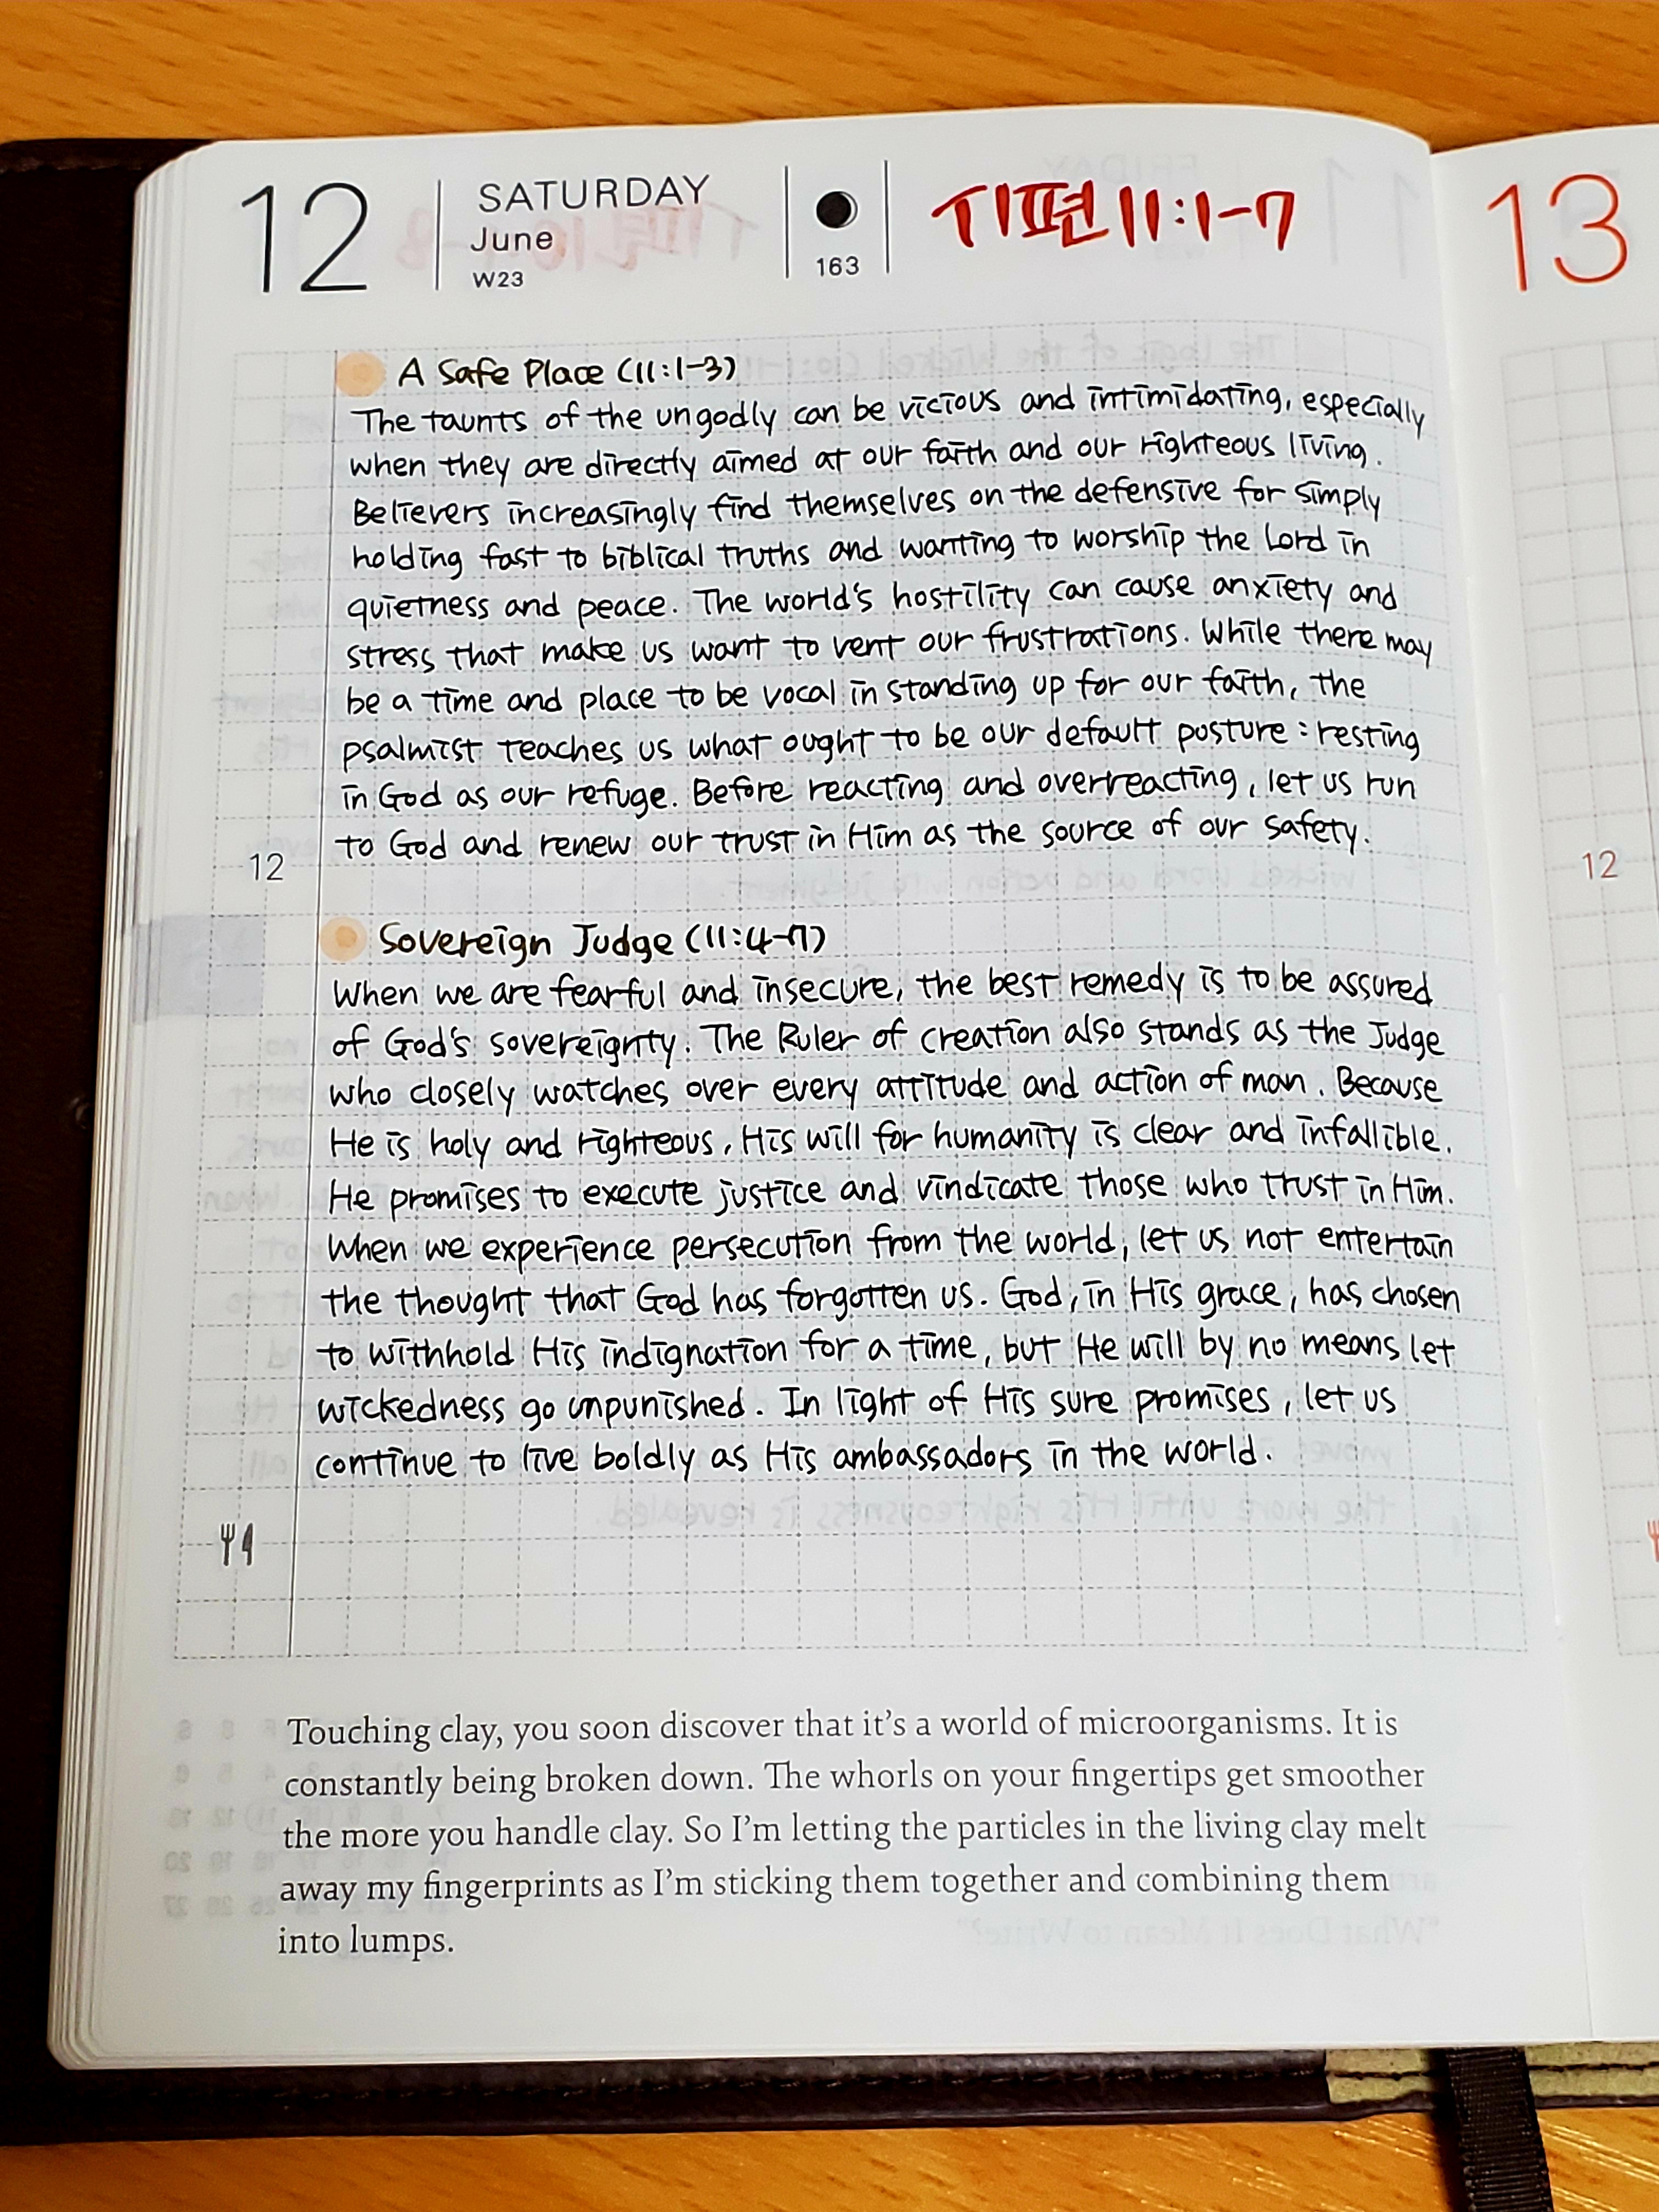 12
SATURDAY
June
W23
163
시편 11:1-7
13
A Safe Place (11:1-3)
The taunts of the ungodly can be vicious and intimidating, especially
when they are directly aimed at our faith and our righteous living.
Believers increasingly find themselves on the defensive for simply
holding fast to biblical truths and wanting to worship the Lord in
quietness and peace. The world's hostility can cause anxiety and
stress that make us want to vent our frustrations. While there may
be a time and place to be vocal in standing up for our faith, the
psalmist teaches us what ought to be our default posture: resting
in God as our refuge. Before reacting and overreacting, let us run
to God and renew our trust in Him as the source of our safety.
12
12
Sovereign Judge (11:4-7)
When we are fearful and insecure, the best remedy is to be assured
of God's sovereignty. The Ruler of creation also stands as the Judge
who closely watches over every attitude and action of man. Because
He is holy and righteous, His will for humanity is clear and infallible.
He promises to execute justice and vindicate those who trust in Him.
When we experience persecution from the world, let us not entertain
the thought that God has forgotten us. God, in His grace, has chosen
to withhold His indignation for a time, but He will by no means let
wickedness go unpunished. In light of His sure promises, let us
continue to live boldly as His ambassadors in the world.
Touching clay, you soon discover that it's a world of microorganisms. It is
constantly being broken down. The whorls on your fingertips get smoother
the more you handle clay. So I'm letting the particles in the living clay melt
away my fingerprints as I'm sticking them together and combining them
into lumps.